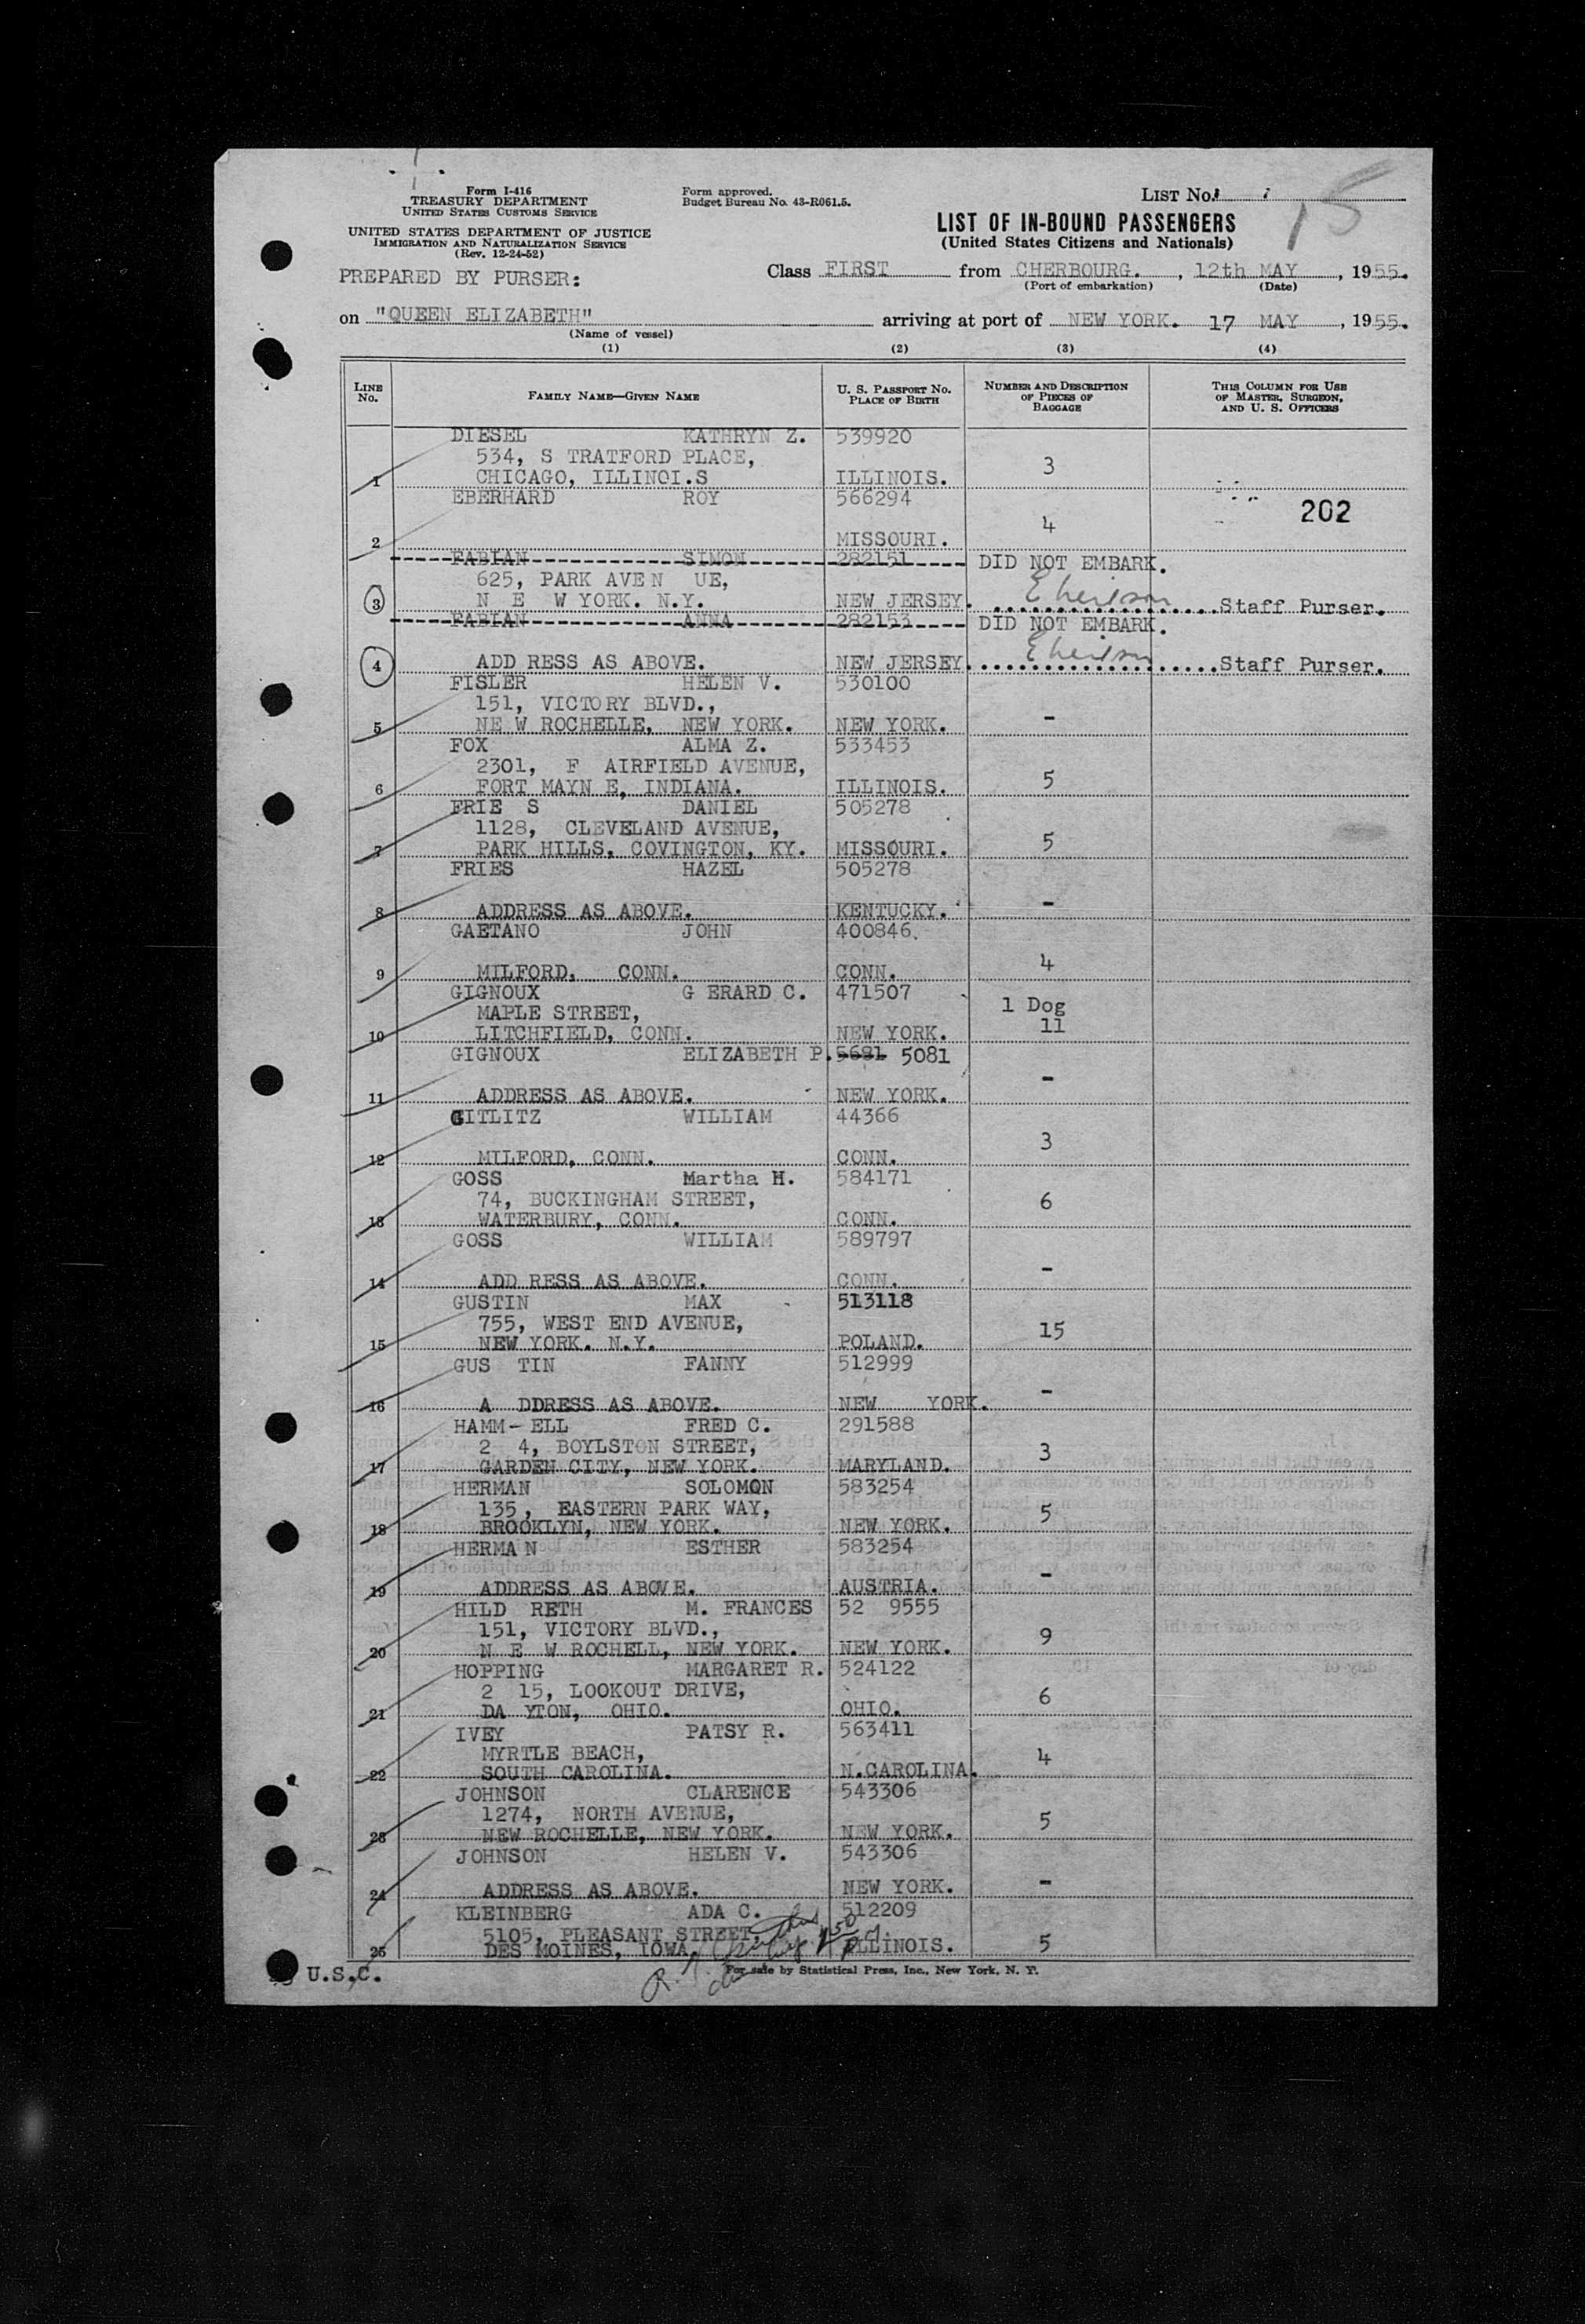 Form I-416
TREASURY DEPARTMENT
UNITED STATES CUSTOMS SERVICE
UNITED STATES DEPARTMENT OF JUSTICE
IMMIGRATION AND NATURALIZATION SERVICE
(Rev. 12-24-52)
Form approved.
Budget Bureau No. 43-R061.5.
LIST No.
15
LIST OF IN-BOUND PASSENGERS
(United States Citizens and Nationals)
PREPARED BY PURSER:
Class FIRST from CHERBOURG. , 12th MAY , 1955.
(Port of embarkation) (Date)
on "QUEEN ELIZABETH" arriving at port of NEW YORK. 17 MAY , 1955.
(Name of vessel)
(1) (2) (3) (4)
LINE No. FAMILY NAME—GIVEN NAME U. S. PASSPORT NO. PLACE OF BIRTH NUMBER AND DESCRIPTION OF PIECES OF BAGGAGE THIS COLUMN FOR USE OF MASTER, SURGEON, AND U. S. OFFICERS
DIESEL KATHRYN Z. 539920
534, S TRATFORD PLACE, 3
1 CHICAGO, ILLINOI.S ILLINOIS.
EBERHARD ROY 566294 202
4
2 MISSOURI.
FABIAN SIMON 282151 DID NOT EMBARK.
625, PARK AVEN UE,
3 N E W YORK. N.Y. NEW JERSEY. Staff Purser.
FABIAN ANNA 282153 DID NOT EMBARK.
4 ADD RESS AS ABOVE. NEW JERSEY. Staff Purser.
FISLER HELEN V. 530100
151, VICTORY BLVD., -
5 NE W ROCHELLE, NEW YORK. NEW YORK.
FOX ALMA Z. 533453
2301, F AIRFIELD AVENUE, 5
6 FORT MAYN E, INDIANA. ILLINOIS.
FRIE S DANIEL 505278
1128, CLEVELAND AVENUE, 5
7 PARK HILLS, COVINGTON, KY. MISSOURI.
FRIES HAZEL 505278
-
8 ADDRESS AS ABOVE. KENTUCKY.
GAETANO JOHN 400846.
4
9 MILFORD, CONN. CONN.
GIGNOUX G ERARD C. 471507 1 Dog
MAPLE STREET, 11
10 LITCHFIELD, CONN. NEW YORK.
GIGNOUX ELIZABETH P. 5681 5081
-
11 ADDRESS AS ABOVE. NEW YORK.
GITLITZ WILLIAM 44366
3
12 MILFORD, CONN. CONN.
GOSS Martha H. 584171
74, BUCKINGHAM STREET, 6
13 WATERBURY, CONN. CONN.
GOSS WILLIAM 589797
-
14 ADD RESS AS ABOVE. CONN.
GUSTIN MAX 513118
755, WEST END AVENUE, 15
15 NEW YORK. N.Y. POLAND.
GUS TIN FANNY 512999
-
16 A DDRESS AS ABOVE. NEW YORK.
HAMM- ELL FRED C. 291588
2 4, BOYLSTON STREET, 3
17 GARDEN CITY, NEW YORK. MARYLAND.
HERMAN SOLOMON 583254
135, EASTERN PARK WAY, 5
18 BROOKLYN, NEW YORK. NEW YORK.
HERMA N ESTHER 583254
-
19 ADDRESS AS ABOVE. AUSTRIA.
HILD RETH M. FRANCES 52 9555
151, VICTORY BLVD., 9
20 N E W ROCHELL, NEW YORK. NEW YORK.
HOPPING MARGARET R. 524122
2 15, LOOKOUT DRIVE, 6
21 DA YTON, OHIO. OHIO.
IVEY PATSY R. 563411
MYRTLE BEACH, 4
22 SOUTH CAROLINA. N.CAROLINA.
JOHNSON CLARENCE 543306
1274, NORTH AVENUE, 5
23 NEW ROCHELLE, NEW YORK. NEW YORK.
JOHNSON HELEN V. 543306
-
24 ADDRESS AS ABOVE. NEW YORK.
KLEINBERG ADA C. 512209
5105, PLEASANT STREET,
25 DES MOINES, IOWA. ILLINOIS. 5
U.S.C.
For sale by Statistical Press, Inc., New York, N. Y.